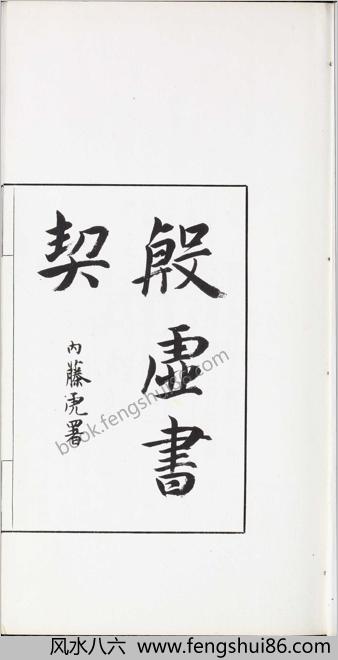 殷虛書
契
内藤虎署
book.fengshui86.com
风水八六 www.fengshui86.com